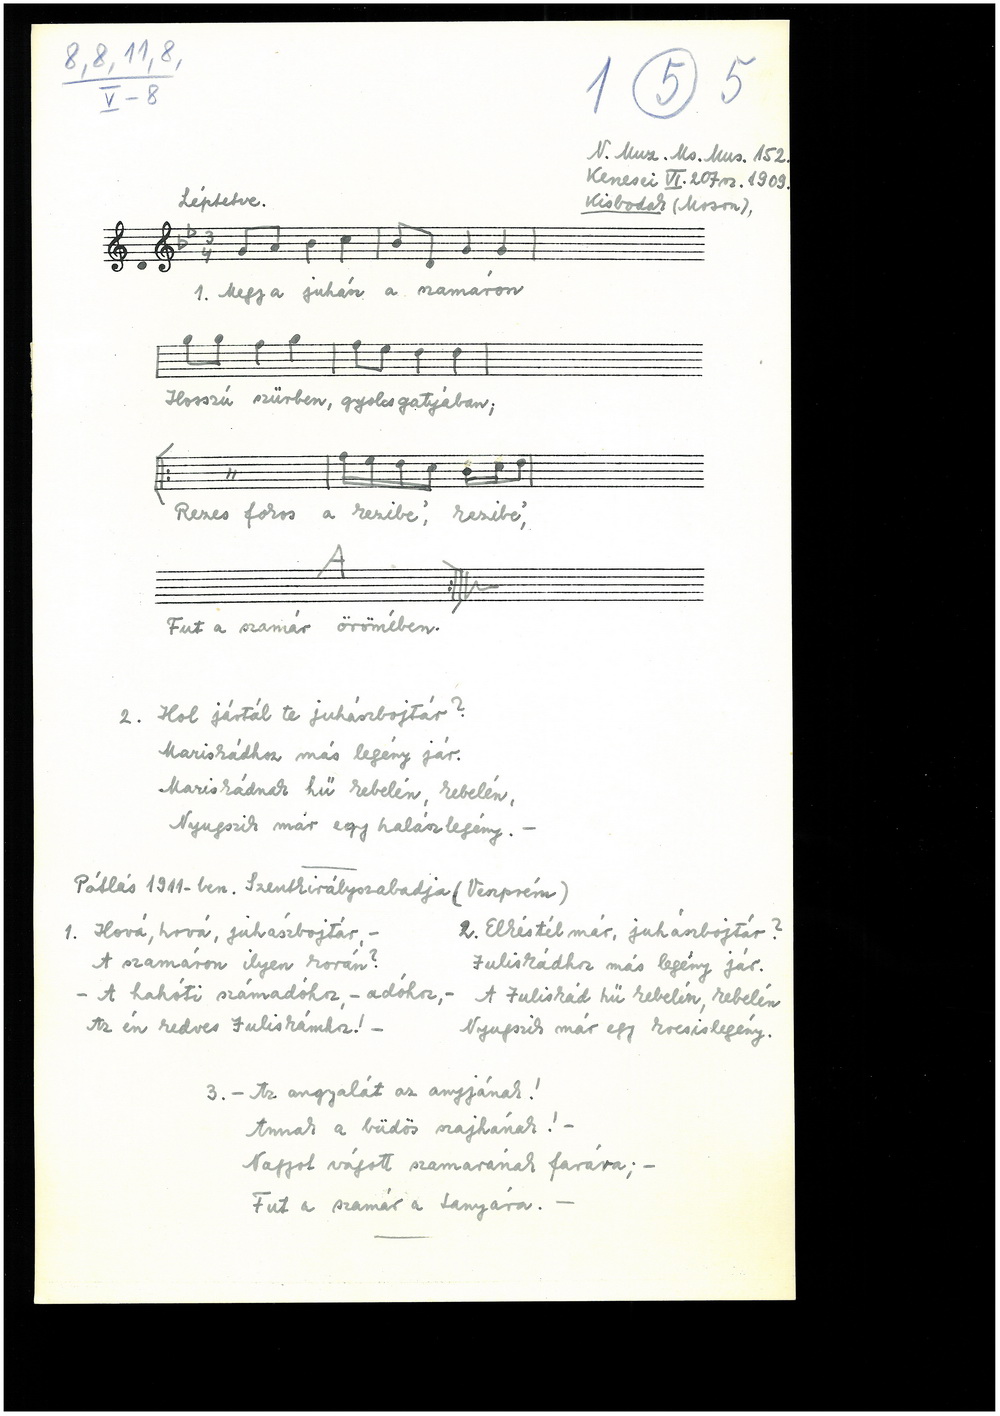 8, 8, 11, 8,
V-8
1 (5) 5
N. Muz. Ms. Mus. 152.
Kenesei VI. 207sz. 1909.
Kisbodak (Moson),
Léptetve.
3
4
1. Megy a juhász a szamáron
Hosszú szűrben, gyolcsgatyában;
Rezes fokos a kezibe', kezibe',
A
Fut a szamár örömében.
2. Hol jártál te juhászbojtár?
Mariskádhoz más legény jár.
Mariskádnak hű kebelén, kebelén,
Nyugszik már egy halászlegény. –
Pótlás 1911-ben. Szentkirályszabadja (Veszprém)
1. Hová, hová, juhászbojtár, –
A szamáron ilyen korán?
– A hahóti számadóhoz, – adóhoz, –
Az én kedves Juliskámhoz! –
2. Elkéstél már, juhászbojtár?
Juliskádhoz más legény jár.
A Juliskád hű kebelén, kebelén
Nyugszik már egy kocsislegény.
3. – Az angyalát az anyjának!
Annak a büdös szajhának! –
Nagyot vágott szamarának farára; –
Fut a szamár a tanyára. –